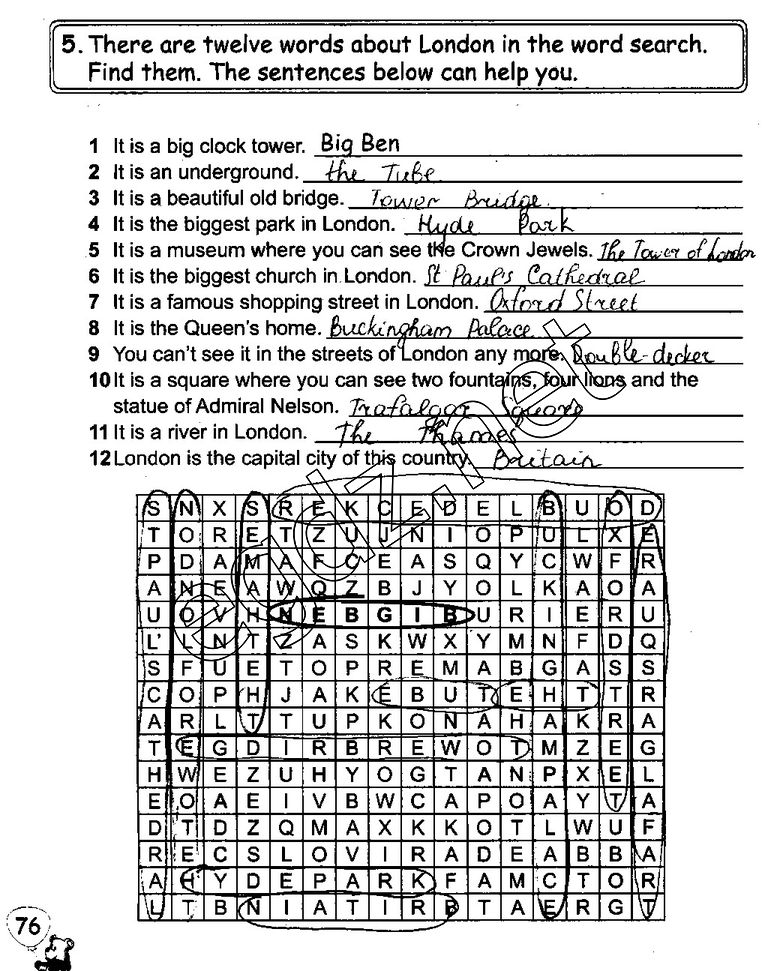 5. There are twelve words about London in the word search.
Find them. The sentences below can help you.
1 It is a big clock tower. Big Ben
2 It is an underground. the Tube
3 It is a beautiful old bridge. Tower Bridge.
4 It is the biggest park in London. Hyde Park
5 It is a museum where you can see the Crown Jewels. The Tower of London
6 It is the biggest church in London. St Paul's Cathedral
7 It is a famous shopping street in London. Oxford Street
8 It is the Queen's home. Buckingham Palace
9 You can't see it in the streets of London any more. Double-decker
10 It is a square where you can see two fountains, four lions and the
statue of Admiral Nelson. Trafalgar Square
11 It is a river in London. The Thames
12 London is the capital city of this country. Britain
egdz.net
S N X S R E K C E D E L B U O D
T O R E T Z U J N I O P U L X E
P D A M A F C E A S Q Y C W F R
A N E A W Q Z B J Y O L K A O A
U O V H N E B G I B U R I E R U
L' L N T Z A S K W X Y M N F D Q
S F U E T O P R E M A B G A S S
C O P H J A K E B U T E H T T R
A R L T T U P K O N A H A K R A
T E G D I R B R E W O T M Z E G
H W E Z U H Y O G T A N P X E L
E O A E I V B W C A P O A Y T A
D T D Z Q M A X K K O T L W U F
R E C S L O V I R A D E A B B A
A H Y D E P A R K F A M C T O R
L T B N I A T I R B T A E R G T
76